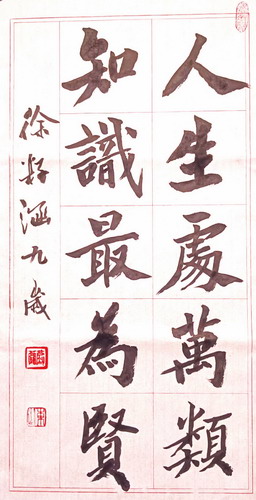 人生處萬類
知識最為賢
徐籽涵九歲